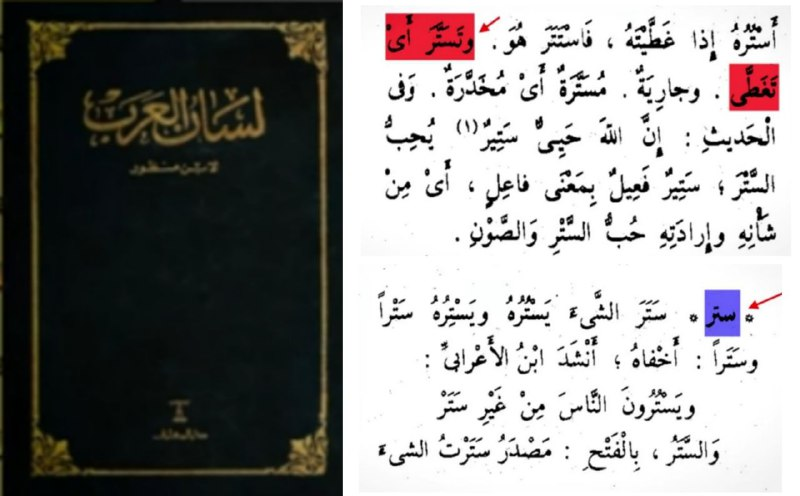 لسان العرب
لابن منظور
أَسْتُرُهُ إِذا غَطَّيْتَهُ ، فَاسْتَتَرَ هُوَ . وتَسَتَّرَ أَىْ
تَغَطَّى . وجارِيَةٌ . مُسَتَّرَةٌ أَىْ مُخَدَّرَةٌ . وَفى
الْحَدِيثِ : إِنَّ اللهَ حَيِىٌّ سَتِيرٌ (١) يُحِبُّ
السَّتْرَ ؛ سَتِيرٌ فَعِيلٌ بِمَعْنَى فاعِلٍ ، أَىْ مِنْ
شَأْنِهِ وإِرادَتِهِ حُبُّ السَّتْرِ وَالصَّوْنِ .
* ستر * سَتَرَ الشَّىْءَ يَسْتُرُهُ ويَسْتِرُهُ سَتْراً
وسَتَراً : أَخْفاهُ ؛ أَنْشَدَ ابْنُ الأَعْرابىِّ :
ويَسْتُرُونَ النَّاسَ مِنْ غَيْرِ سَتَرْ
وَالسَّتَرُ ، بِالْفَتْحِ : مَصْدَرُ سَتَرْتُ الشىءَ